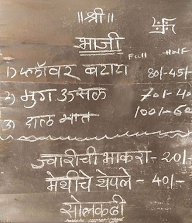 ॥श्री॥
भाजी Full Half
1) फ्लॉवर बटाटा 80/-45/-
2) मुग उसळ 70/-40
3) डाळ भात 100/-60
ज्वारीची भाकरी - 20/-
मेथीचे थेपले - 40/-
सोलकढी